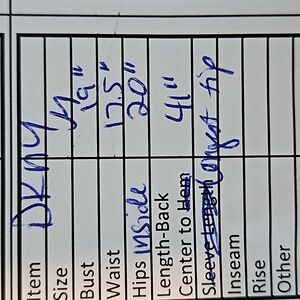 Item DKNY
Size
Bust 19"
Waist 17.5"
Hips inside 20"
Length-Back 41"
Center to Hem
Sleeve Length longest tip
Inseam
Rise
Other